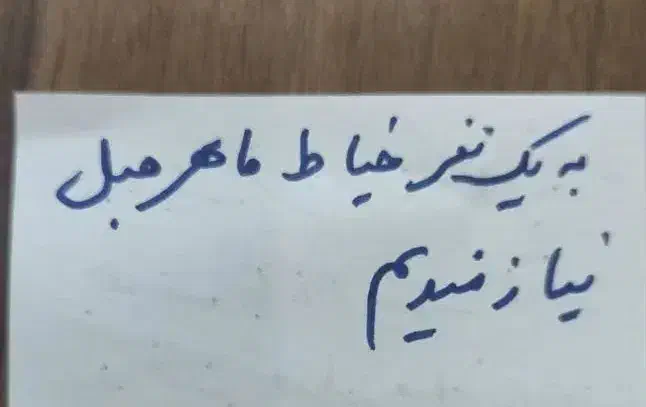 به یک نفر خیاط ماهر مبل
نیازمندیم